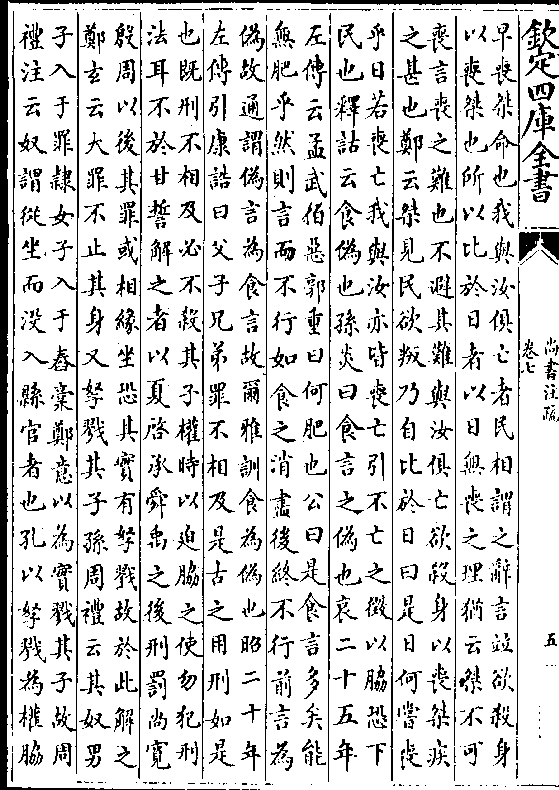 欽定四庫全書
尚書注疏
卷七
五
早喪桀命也我與汝俱亡者民相謂之辭言並欲殺身
以喪桀也所以比於日者以日無喪之理猶云桀不可
喪言喪之難也不避其難與汝俱亡欲殺身以喪桀疾
之甚也鄭云桀見民欲叛乃自比於日曰是日何嘗喪
乎日若喪亡我與汝亦皆喪亡引不亡之徵以脅恐下
民也釋詁云食偽也孫炎曰食言之偽也哀二十五年
左傳云孟武伯惡郭重曰何肥也公曰是食言多矣能
無肥乎然則言而不行如食之消盡後終不行前言為
偽故通謂偽言為食言故爾雅訓食為偽也昭二十年
左傳引康誥曰父子兄弟罪不相及是古之用刑如是
也既刑不相及必不殺其子權時以迫脅之使勿犯刑
法耳不於甘誓解之者以夏啓承舜禹之後刑罰尚寬
殷周以後其罪或相緣坐恐其實有孥戮故於此解之
鄭玄云大罪不止其身又孥戮其子孫周禮云其奴男
子入于罪隸女子入于舂槀鄭意以為實戮其子故周
禮注云奴謂從坐而没入縣官者也孔以孥戮為權脅